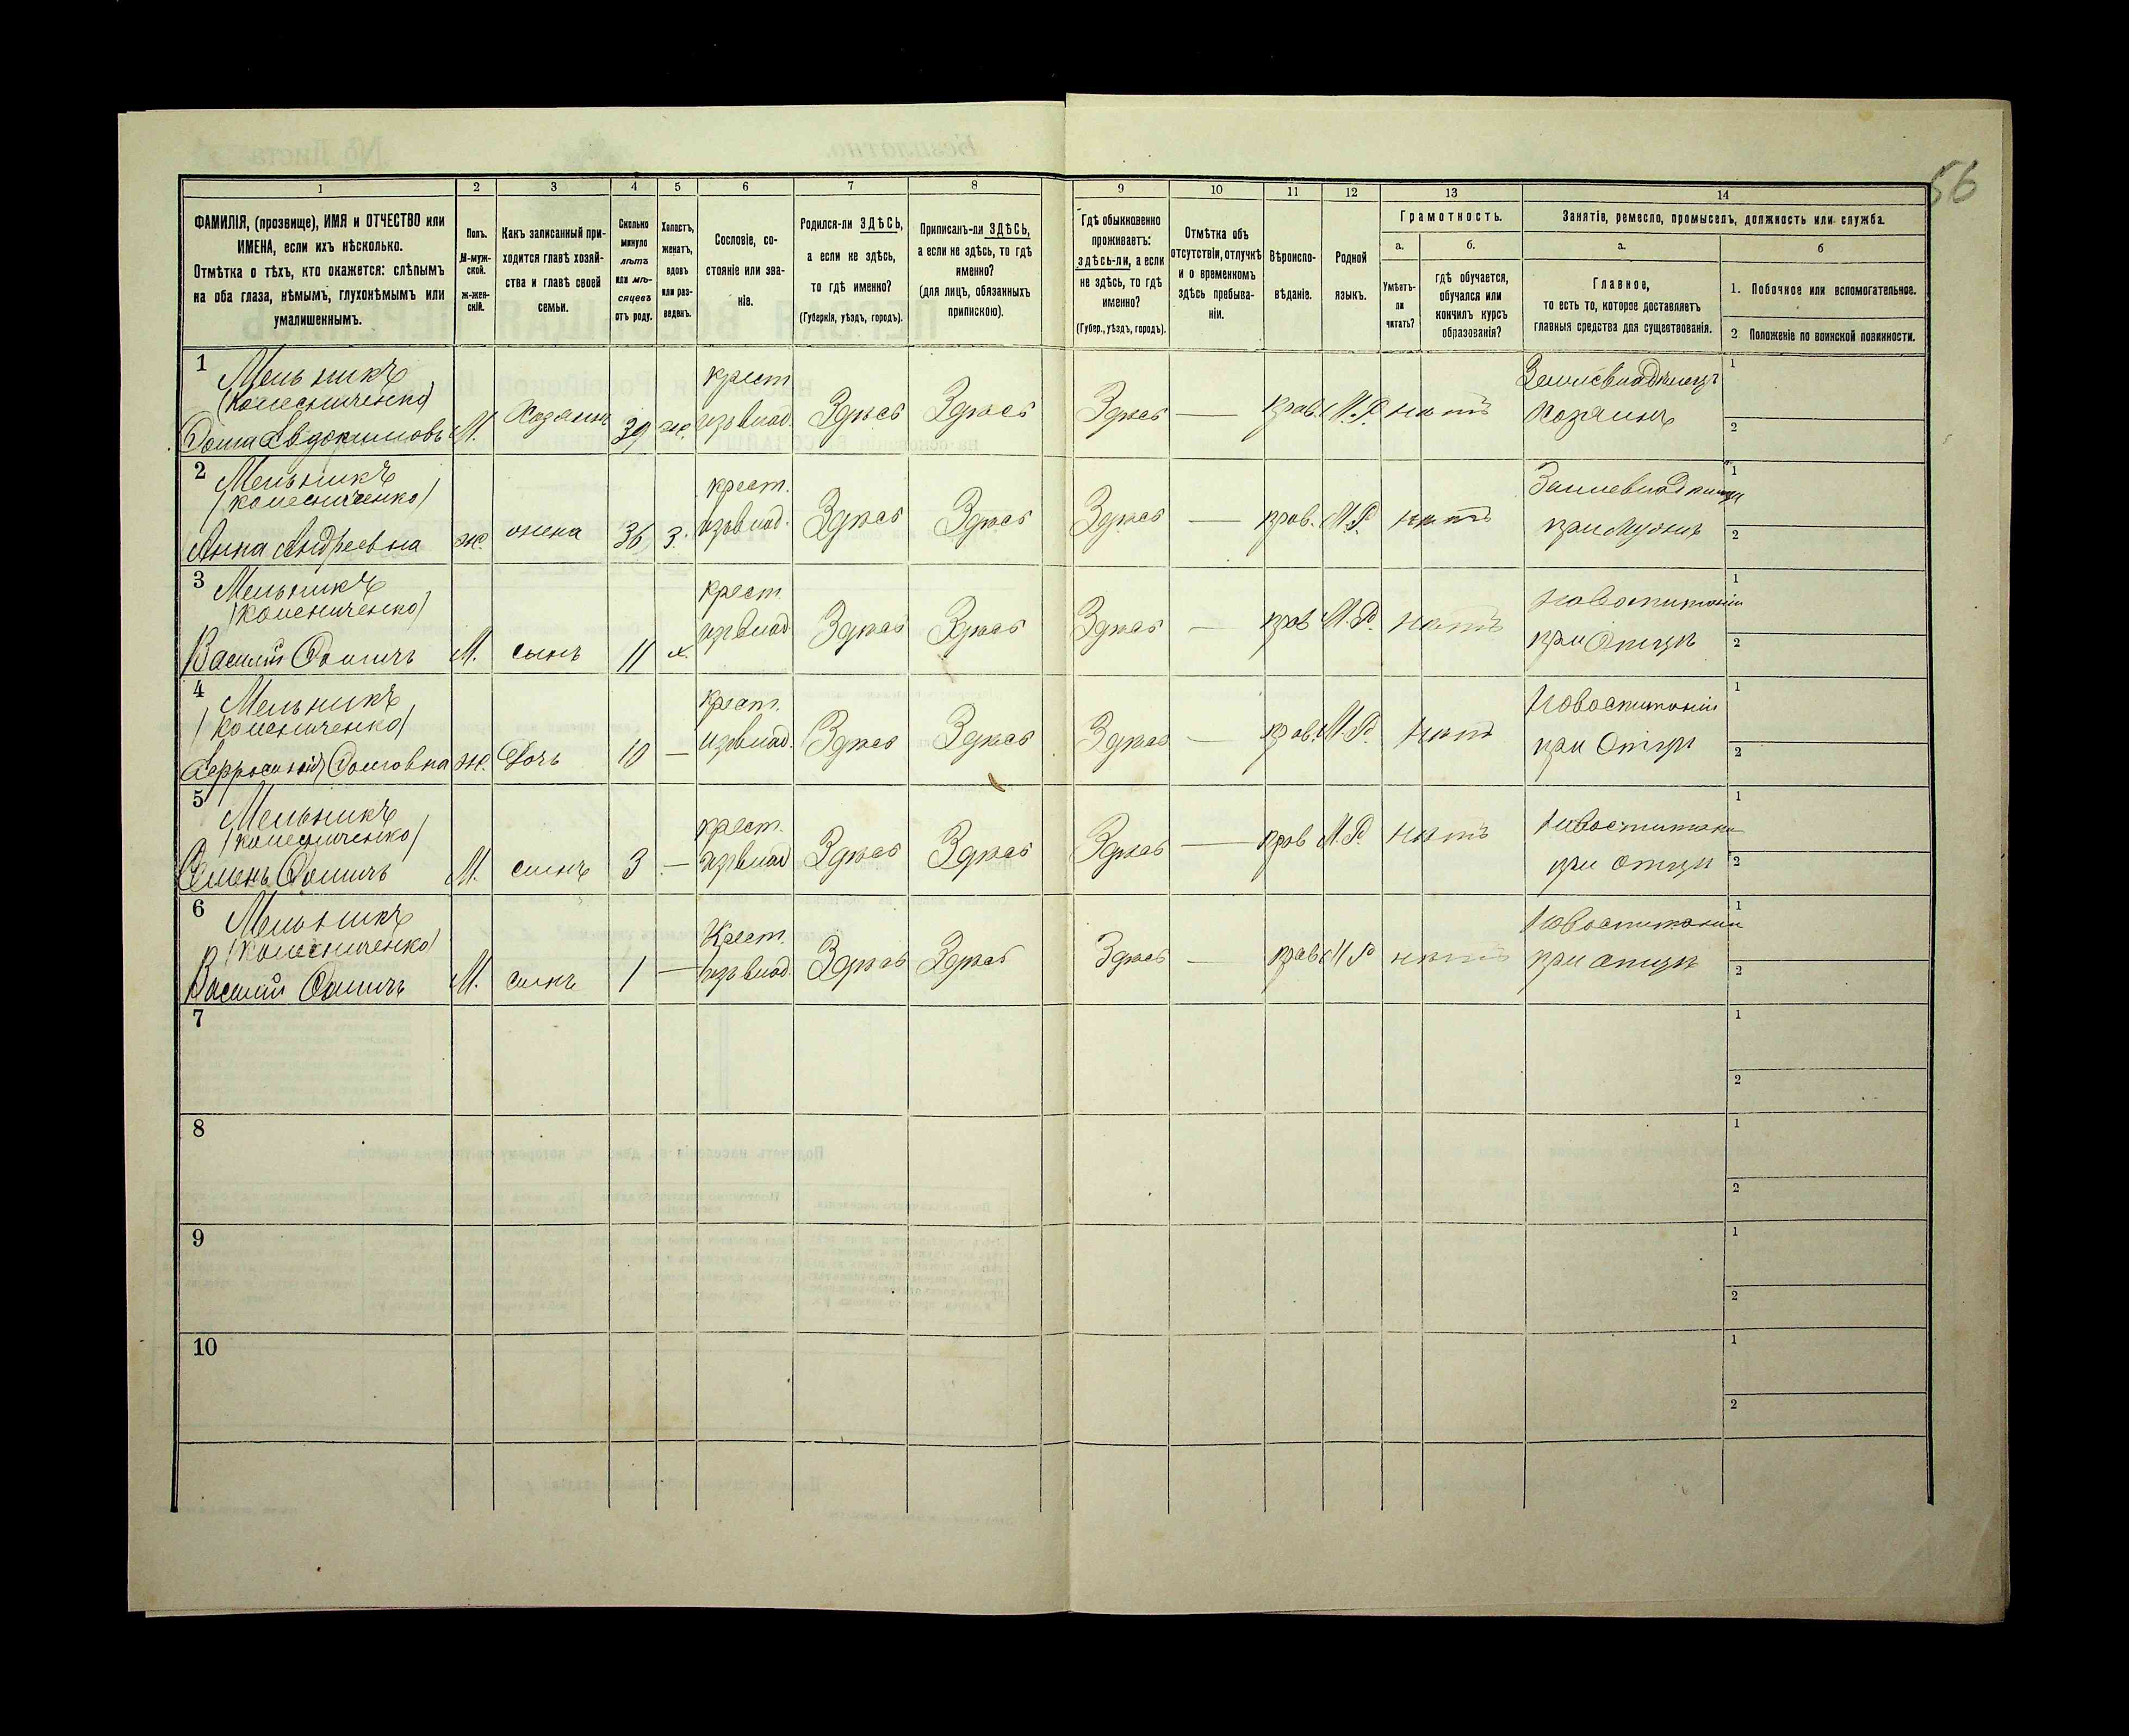 56
1
2
3
4
5
6
7
8
9
10
11
12
13
14
ФАМИЛІЯ, (прозвище), ИМЯ и ОТЧЕСТВО или
ИМЕНА, если ихъ нѣсколько.
Отмѣтка о тѣхъ, кто окажется: слѣпымъ
на оба глаза, нѣмымъ, глухонѣмымъ или
умалишеннымъ.
Полъ.
М-муж-
ской.
Ж-жен-
скій.
Какъ записанный при-
ходится главѣ хозяй-
ства и главѣ своей
семьи.
Сколько
минуло
лѣтъ
или мѣ-
сяцевъ
отъ роду.
Холостъ,
женатъ,
вдовъ
или раз-
веденъ.
Сословіе, со-
стояніе или зва-
ніе.
Родился-ли ЗДѢСЬ,
а если не здѣсь,
то гдѣ именно?
(Губернія, уѣздъ, городъ).
Приписанъ-ли ЗДѢСЬ,
а если не здѣсь, то гдѣ
именно?
(для лицъ, обязанныхъ
припискою).
Гдѣ обыкновенно
проживаетъ:
здѣсь-ли, а если
не здѣсь, то гдѣ
именно?
(Губер., уѣздъ, городъ).
Отмѣтка объ
отсутствіи, отлучкѣ
и о временномъ
здѣсь пребыва-
ніи.
Вѣроиспо-
вѣданіе.
Родной
языкъ.
Грамотность.
а.
б.
Умѣетъ-
ли
читать?
гдѣ обучается,
обучался или
кончилъ курсъ
образованія?
Занятіе, ремесло, промыселъ, должность или служба.
а.
б
Главное,
то есть то, которое доставляетъ
главныя средства для существованія.
1. Побочное или вспомогательное.
2 Положеніе по воинской повинности.
1
Мельникъ
(Колесниченко)
Фома Евдокимовъ
М.
Хозяинъ
39
ж.
крест.
изъ влад.
Здѣсь
Здѣсь
Здѣсь
—
прав.
М.Р.
нѣтъ
Землевладѣлецъ
Хозяинъ
1
2
2
Мельникъ
(Колесниченко)
Анна Андреевна
ж.
жена
36
З.
крест.
изъ влад.
Здѣсь
Здѣсь
Здѣсь
—
прав.
М.Р.
нѣтъ
при мужѣ
1
2
3
Мельникъ
(Колесниченко)
Василій Фомичъ
М.
сынъ
11
х.
крест.
изъ влад
Здѣсь
Здѣсь
Здѣсь
—
прав
М.Р.
нѣтъ
при Отцѣ
1
2
4
Мельникъ
(Колесниченко)
Фомовна
ж.
Дочь
10
—
крест.
изъ влад.
Здѣсь
Здѣсь
Здѣсь
—
прав.
М.Р.
нѣтъ
при Отцѣ
1
2
5
Мельникъ
(Колесниченко)
Семенъ Фомичъ
М.
сынъ
3
—
крест.
изъ влад
Здѣсь
Здѣсь
Здѣсь
—
прав
М.Р.
нѣтъ
при отцѣ
1
2
6
Мельникъ
(Колесниченко)
Василій Фомичъ
М.
сынъ
1
—
Крест.
изъ влад.
Здѣсь
Здѣсь
Здѣсь
—
прав
М Р
нѣтъ
при отцѣ
1
2
7
1
2
8
1
2
9
1
2
10
1
2